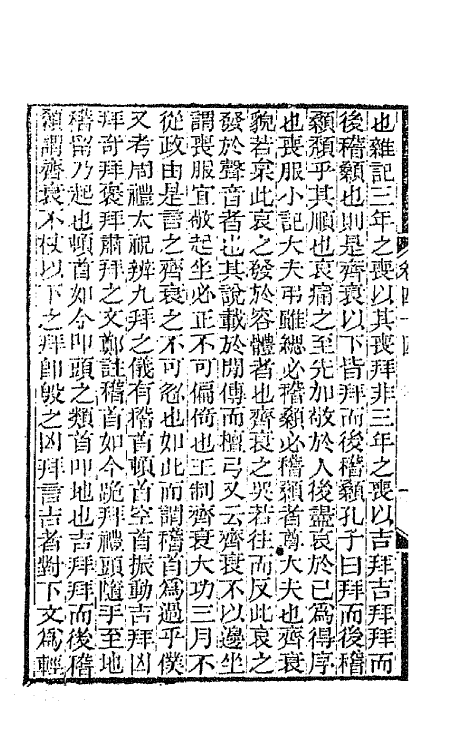 也雜記三年之喪以其喪拜非三年之喪以吉拜吉拜拜而
後稽顙也則是齊衰以下皆拜而後稽顙孔子曰拜而後稽
顙頹乎其順也哀痛之至先加敬於人後盡哀於己為得序
也喪服小記大夫弔雖緦必稽顙必稽顙者尊大夫也齊衰
貌若枲此哀之發於容體者也齊衰之哭若往而反此哀之
發於聲音者也其說載於閒傳而檀弓又云齊衰不以邊坐
謂喪服宜敬起坐必正不可偏倚也王制齊衰大功三月不
從政由是言之齊衰之不可忽也如此而謂稽首為過乎僕
又考周禮太祝辨九拜之儀有稽首頓首空首振動吉拜凶
拜奇拜褒拜肅拜之文鄭註稽首如今跪拜禮頭隨手至地
稽留乃起也頓首如今叩頭之類首叩地也吉拜拜而後稽
顙謂齊衰不杖以下之拜即毀之凶拜言吉者對下文為輕
卷四十四